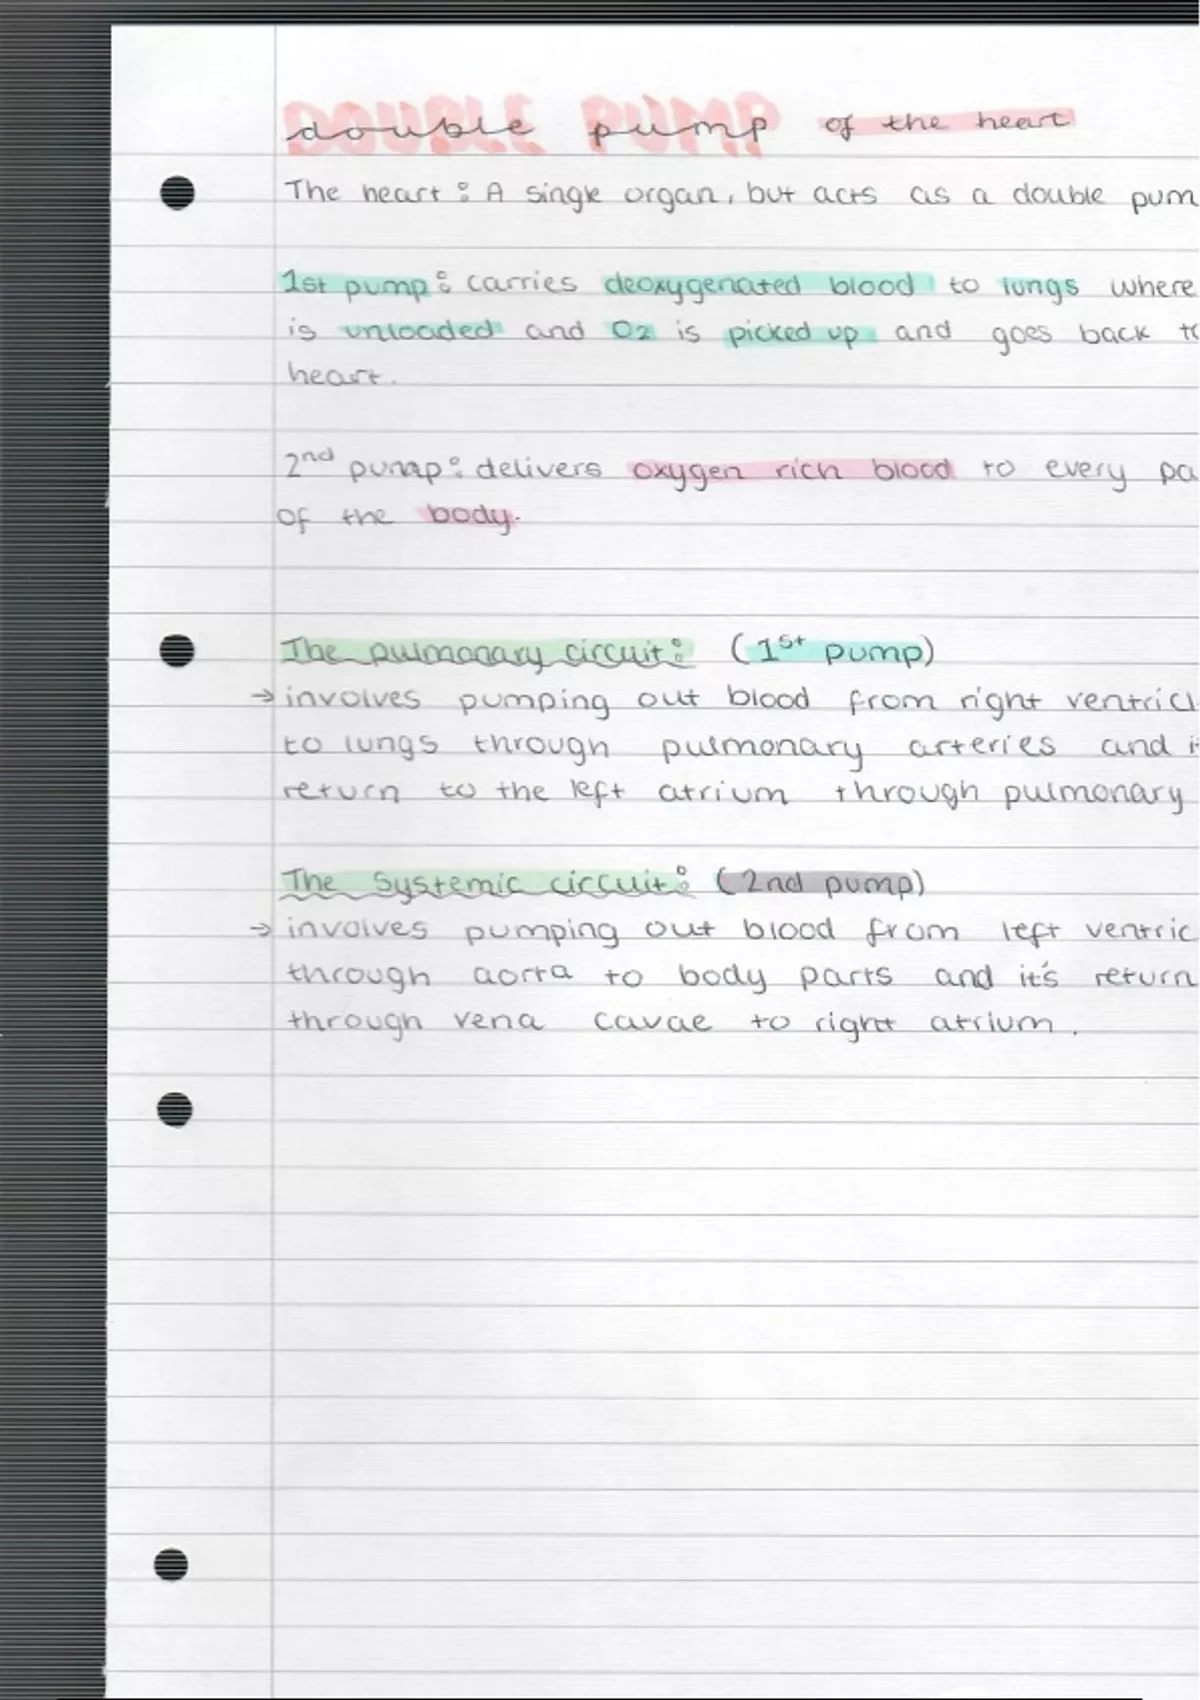 double pump of the heart
The heart: A single organ, but acts as a double pum
1st pump: carries deoxygenated blood to lungs where
is unloaded and O2 is picked up and goes back to
heart.
2nd pump: delivers oxygen rich blood to every pa
of the body.
The pulmonary circuit: (1st pump)
→ involves pumping out blood from right ventricl
to lungs through pulmonary arteries and i
return to the left atrium through pulmonary
The systemic circuit: (2nd pump)
→ involves pumping out blood from left ventric
through aorta to body parts and it's return
through vena cavae to right atrium.